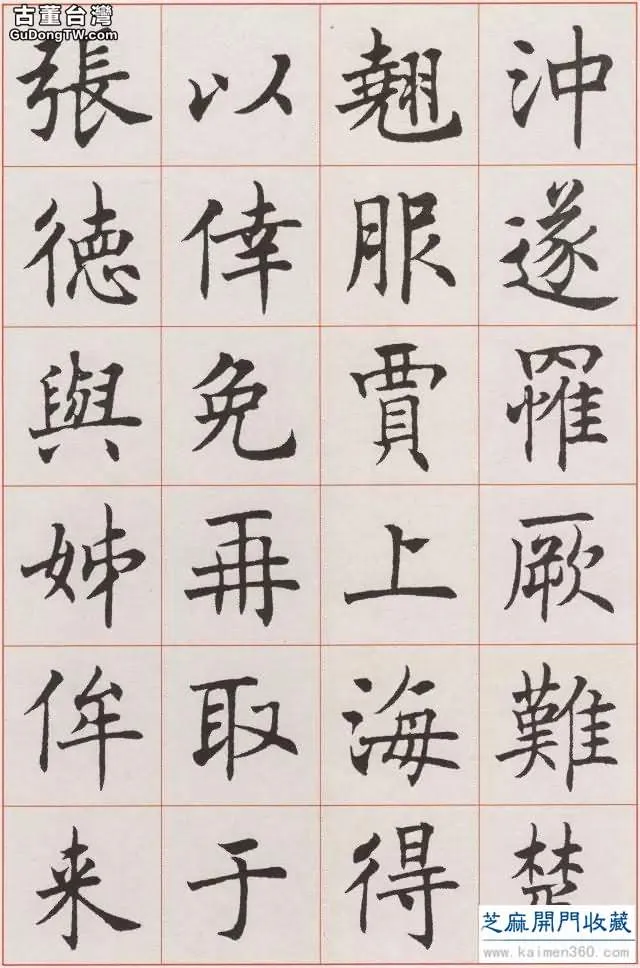 古董台灣
GuDongTW.com
沖遂罹厥難楚
翹服賈上海得
以倖免再取于
張徳與姊侔来
芝麻開門收藏
www.kaimen360.com